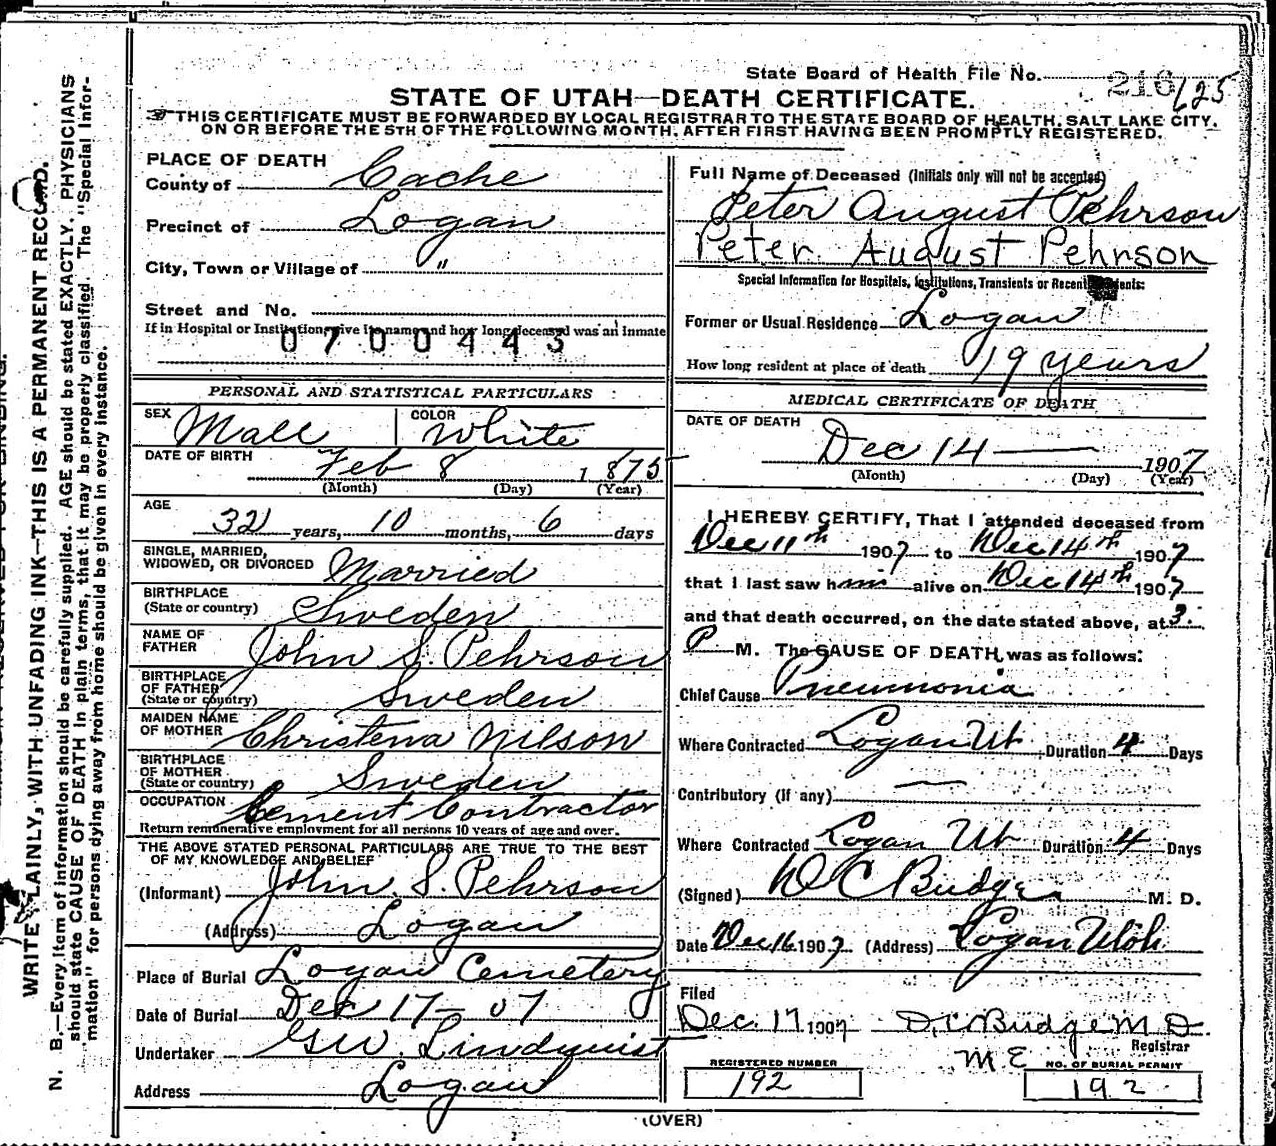 State Board of Health File No. 216 125
STATE OF UTAH—DEATH CERTIFICATE.
THIS CERTIFICATE MUST BE FORWARDED BY LOCAL REGISTRAR TO THE STATE BOARD OF HEALTH, SALT LAKE CITY,
ON OR BEFORE THE 5TH OF THE FOLLOWING MONTH, AFTER FIRST HAVING BEEN PROMPTLY REGISTERED.
PLACE OF DEATH
County of Cache
Precinct of Logan
City, Town or Village of "
Street and No.
If in Hospital or Institution, give its name and how long deceased was an Inmate
0700443
PERSONAL AND STATISTICAL PARTICULARS
SEX Male COLOR White
DATE OF BIRTH Feb 8 1875
(Month) (Day) (Year)
AGE 32 years, 10 months, 6 days
SINGLE, MARRIED,
WIDOWED, OR DIVORCED Married
BIRTHPLACE
(State or country) Sweden
NAME OF
FATHER John S. Pehrson
BIRTHPLACE
OF FATHER
(State or country) Sweden
MAIDEN NAME
OF MOTHER Christena Nilson
BIRTHPLACE
OF MOTHER
(State or country) Sweden
OCCUPATION Cement Contractor
Return remunerative employment for all persons 10 years of age and over.
THE ABOVE STATED PERSONAL PARTICULARS ARE TRUE TO THE BEST
OF MY KNOWLEDGE AND BELIEF
(Informant) John S. Pehrson
(Address) Logan
Place of Burial Logan Cemetery
Date of Burial Dec 17-07
Undertaker GW Lindquist
Address Logan
Full Name of Deceased (Initials only will not be accepted)
Peter August Pehrson
Peter August Pehrson
Special Information for Hospitals, Institutions, Transients or Recent
Former or Usual Residence Logan
How long resident at place of death 19 years
MEDICAL CERTIFICATE OF DEATH
DATE OF DEATH
Dec 14 — 1907
(Month) (Day) (Year)
I HEREBY CERTIFY, That I attended deceased from
Dec 11th 1907 to Dec 14th 1907
that I last saw him alive on Dec 14th 1907
and that death occurred, on the date stated above, at 3.
P M. The CAUSE OF DEATH, was as follows:
Chief Cause Pneumonia
Where Contracted Logan Ut Duration 4 Days
Contributory (if any) —
Where Contracted Logan Ut Duration 4 Days
(Signed) D C Budge M. D.
Date Dec 16 1907 (Address) Logan Utah
Filed
Dec. 17 1907 D. C. Budge M D.
Registrar
M E
REGISTERED NUMBER NO. OF BURIAL PERMIT
192 192
(OVER)
WRITE PLAINLY, WITH UNFADING INK—THIS IS A PERMANENT RECORD.
N. B.—Every item of information should be carefully supplied. AGE should be stated EXACTLY. PHYSICIANS
should state CAUSE OF DEATH in plain terms, that it may be properly classified. The "Special Infor-
mation" for persons dying away from home should be given in every instance.